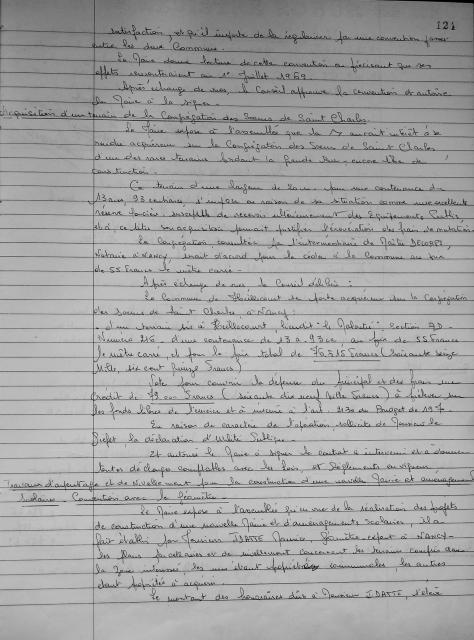 124
satisfaction, et qu'il importe de la régulariser par une convention passée
entre les deux Communes.
Le Maire donne lecture de cette convention en précisant que ses
effets remonteraient au 1er Juillet 1969.
Après échange de vues, le Conseil approuve la convention et autorise
le Maire à la signer.
Acquisition d'un terrain de la Congrégation des Sœurs de Saint Charles.
Le Maire expose à l'assemblée que la aurait intérêt à se
rendre acquéreur sur la Congrégation des Sœurs de Saint Charles
d'un des rares terrains bordant la Grande Rue, encore libre de
construction.
Ce terrain d'une largeur de pour une contenance de
13 ares, 93 centiares, s'impose en raison de sa situation comme une excellente
réserve foncière susceptible de recevoir ultérieurement des Equipements Publics,
et à ce titre son acquisition pourrait justifier l'exonération des frais de mutation.
La Congrégation consultée par l'intermédiaire de Maître
Notaire à Nancy, serait d'accord pour le céder à la Commune au prix
de 55 Francs le mètre carré.
Après échange de vues, le Conseil délibère :
La Commune de se porte acquéreur sur la Congrégation
des Sœurs de Saint Charles, à Nancy :
- d'un terrain sis à lieudit "le Section AD
Numéro 216 d'une contenance de 13 a. 93 ca, au prix de 55 Francs
le mètre carré, et pour le prix total de 76.615 Francs (Soixante seize
Mille, six cent quinze Francs)
Vote pour couvrir la dépense du principal et des frais un
crédit de 79.000 Francs (soixante dix neuf Mille Francs) à prélever sur
les fonds libres de l'exercice et à inscrire à l'art. 2130 du Budget de 197
En raison du caractère de l'opération, sollicite de Monsieur le
Préfet, la déclaration d'Utilité Publique.
Et autorise le Maire à signer le contrat à intervenir et à donner
toutes décharges comptables avec les lois, et Règlements en vigueur.
Travaux d'arpentage et de Nivellement pour la construction d'une nouvelle Mairie et aménagement
scolaire - Convention avec le Géomètre.
Le Maire expose à l'assemblée qu'en vue de la réalisation des projets
de construction d'une nouvelle Mairie et d'aménagements scolaires, il a
fait établir par Monsieur IDATTE Maurice, Géomètre-expert à NANCY,
les plans parcellaires et de nivellement concernant les terrains compris dans
la zone intéressée, les uns étant propriétés communales, les autres
étant propriétés à acquérir.
Le montant des honoraires dûs à Monsieur IDATTE, s'élève